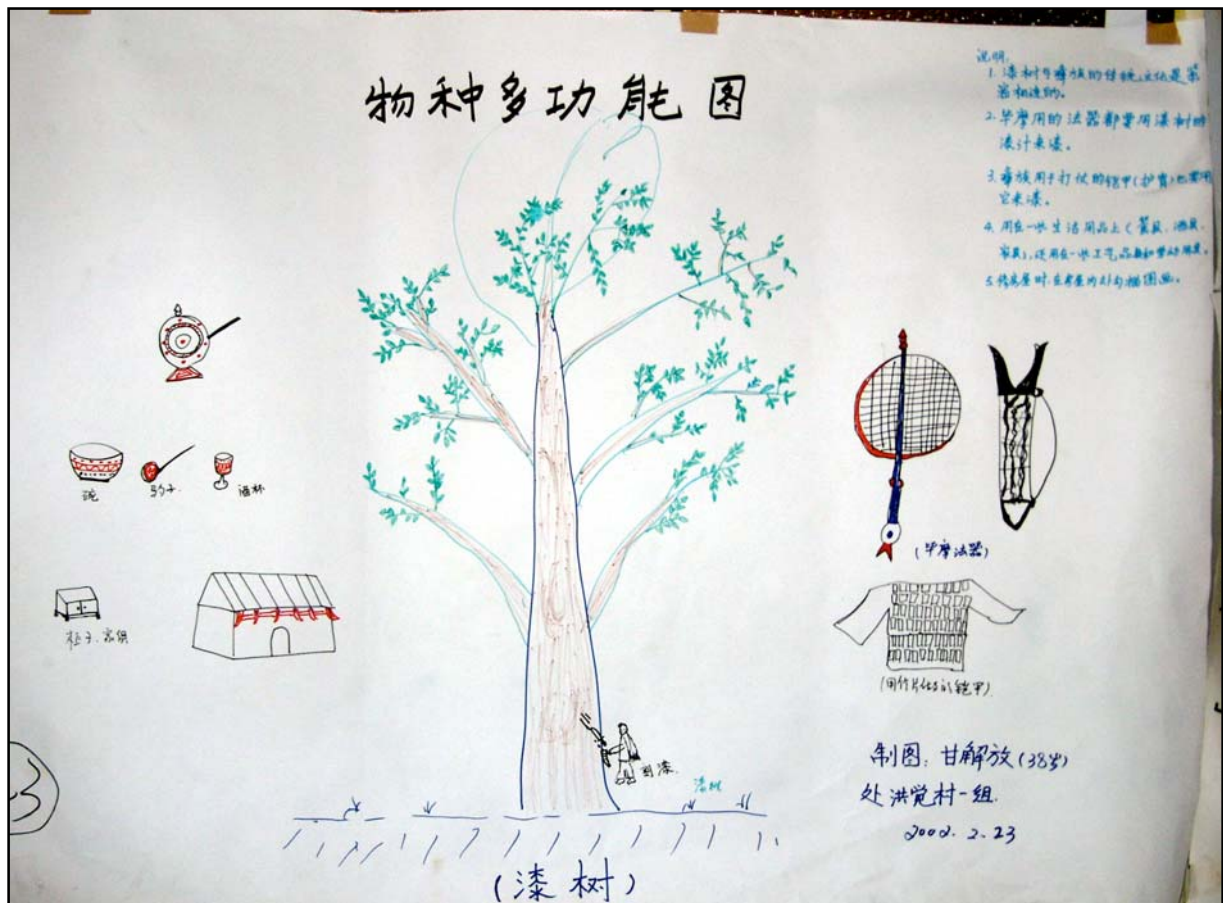 物种多功能图
说明:
1. 漆树与彝族的传统文化是紧
密相连的。
2. 毕摩用的法器都要用漆树的
漆汁来漆。
3. 彝族用于打仗的铠甲(护胃)也要用
它来漆。
4. 用在一些生活用品上(餐具、酒具、
家具),还用在一些工艺品和劳动用具。
5. 修房屋时,在房屋的外勾描图画。
碗
勺子.
酒杯
柜子、家俱
(毕摩法器)
(用竹片做的铠甲)
割漆.
漆树
制图: 甘解放(38岁)
处洪觉村一组.
2002. 2. 23
(漆树)
3